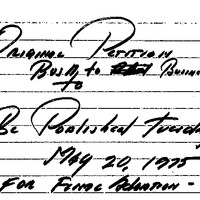 Original Petition
Busily to Business
to
Be Published Tuesda
May 20, 1975
For Final Adoption -